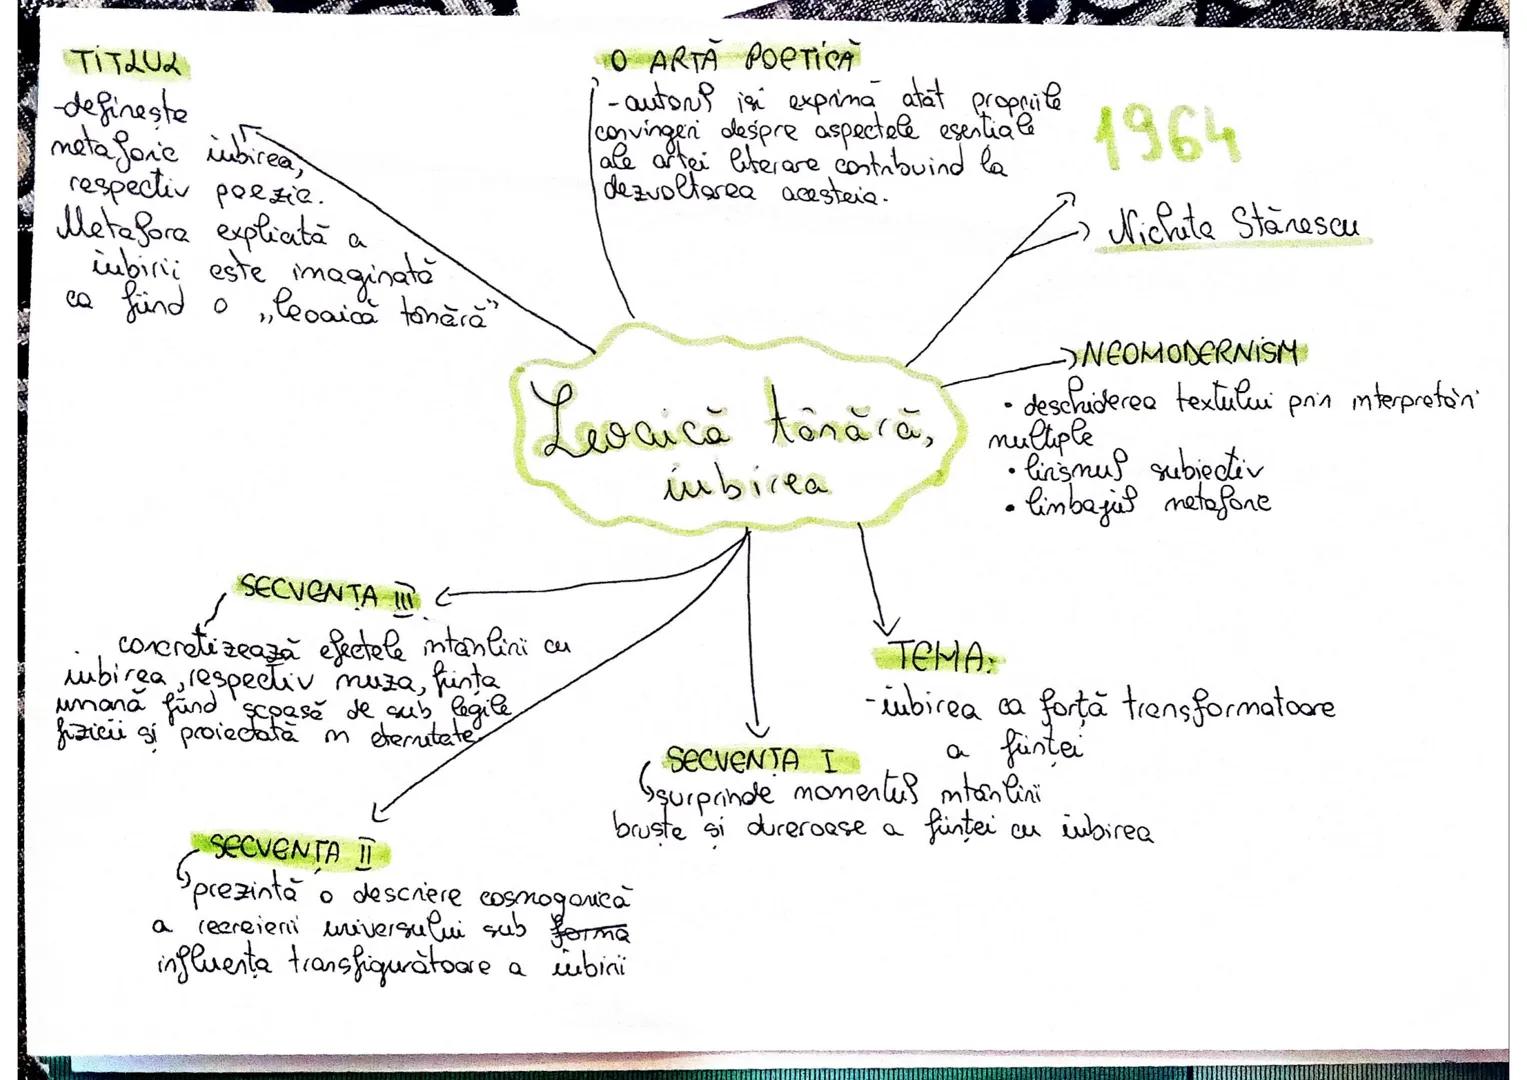 TITLUL
-definește
metaforic iubirea,
respectiv poezie.
Metafora explicită a
iubirii este imaginată
ca fiind o „leoaică tânără”
O ARTĂ POETICĂ
- autorul iși exprimă atât propriile
convingeri despre aspectele esențiale
ale artei literare contribuind la
dezvoltarea acesteia.
1964
Nichita Stănescu
NEOMODERNISM
• deschiderea textului prin interpretări
multiple
• lirismul subiectiv
• limbajul metaforic
Leoaică tânără,
iubirea
SECVENȚA III
concretizează efectele întâlnirii cu
iubirea, respectiv muza, ființa
umană fiind scoasă de sub legile
fizicii și proiectată în eternitate
TEMA:
-iubirea ca forță transformatoare
a ființei
SECVENȚA I
surprinde momentul întâlnirii
bruște și dureroase a ființei cu iubirea
SECVENȚA II
prezintă o descriere cosmogonică
a recreierii universului sub forma
influența transfiguratoare a iubirii